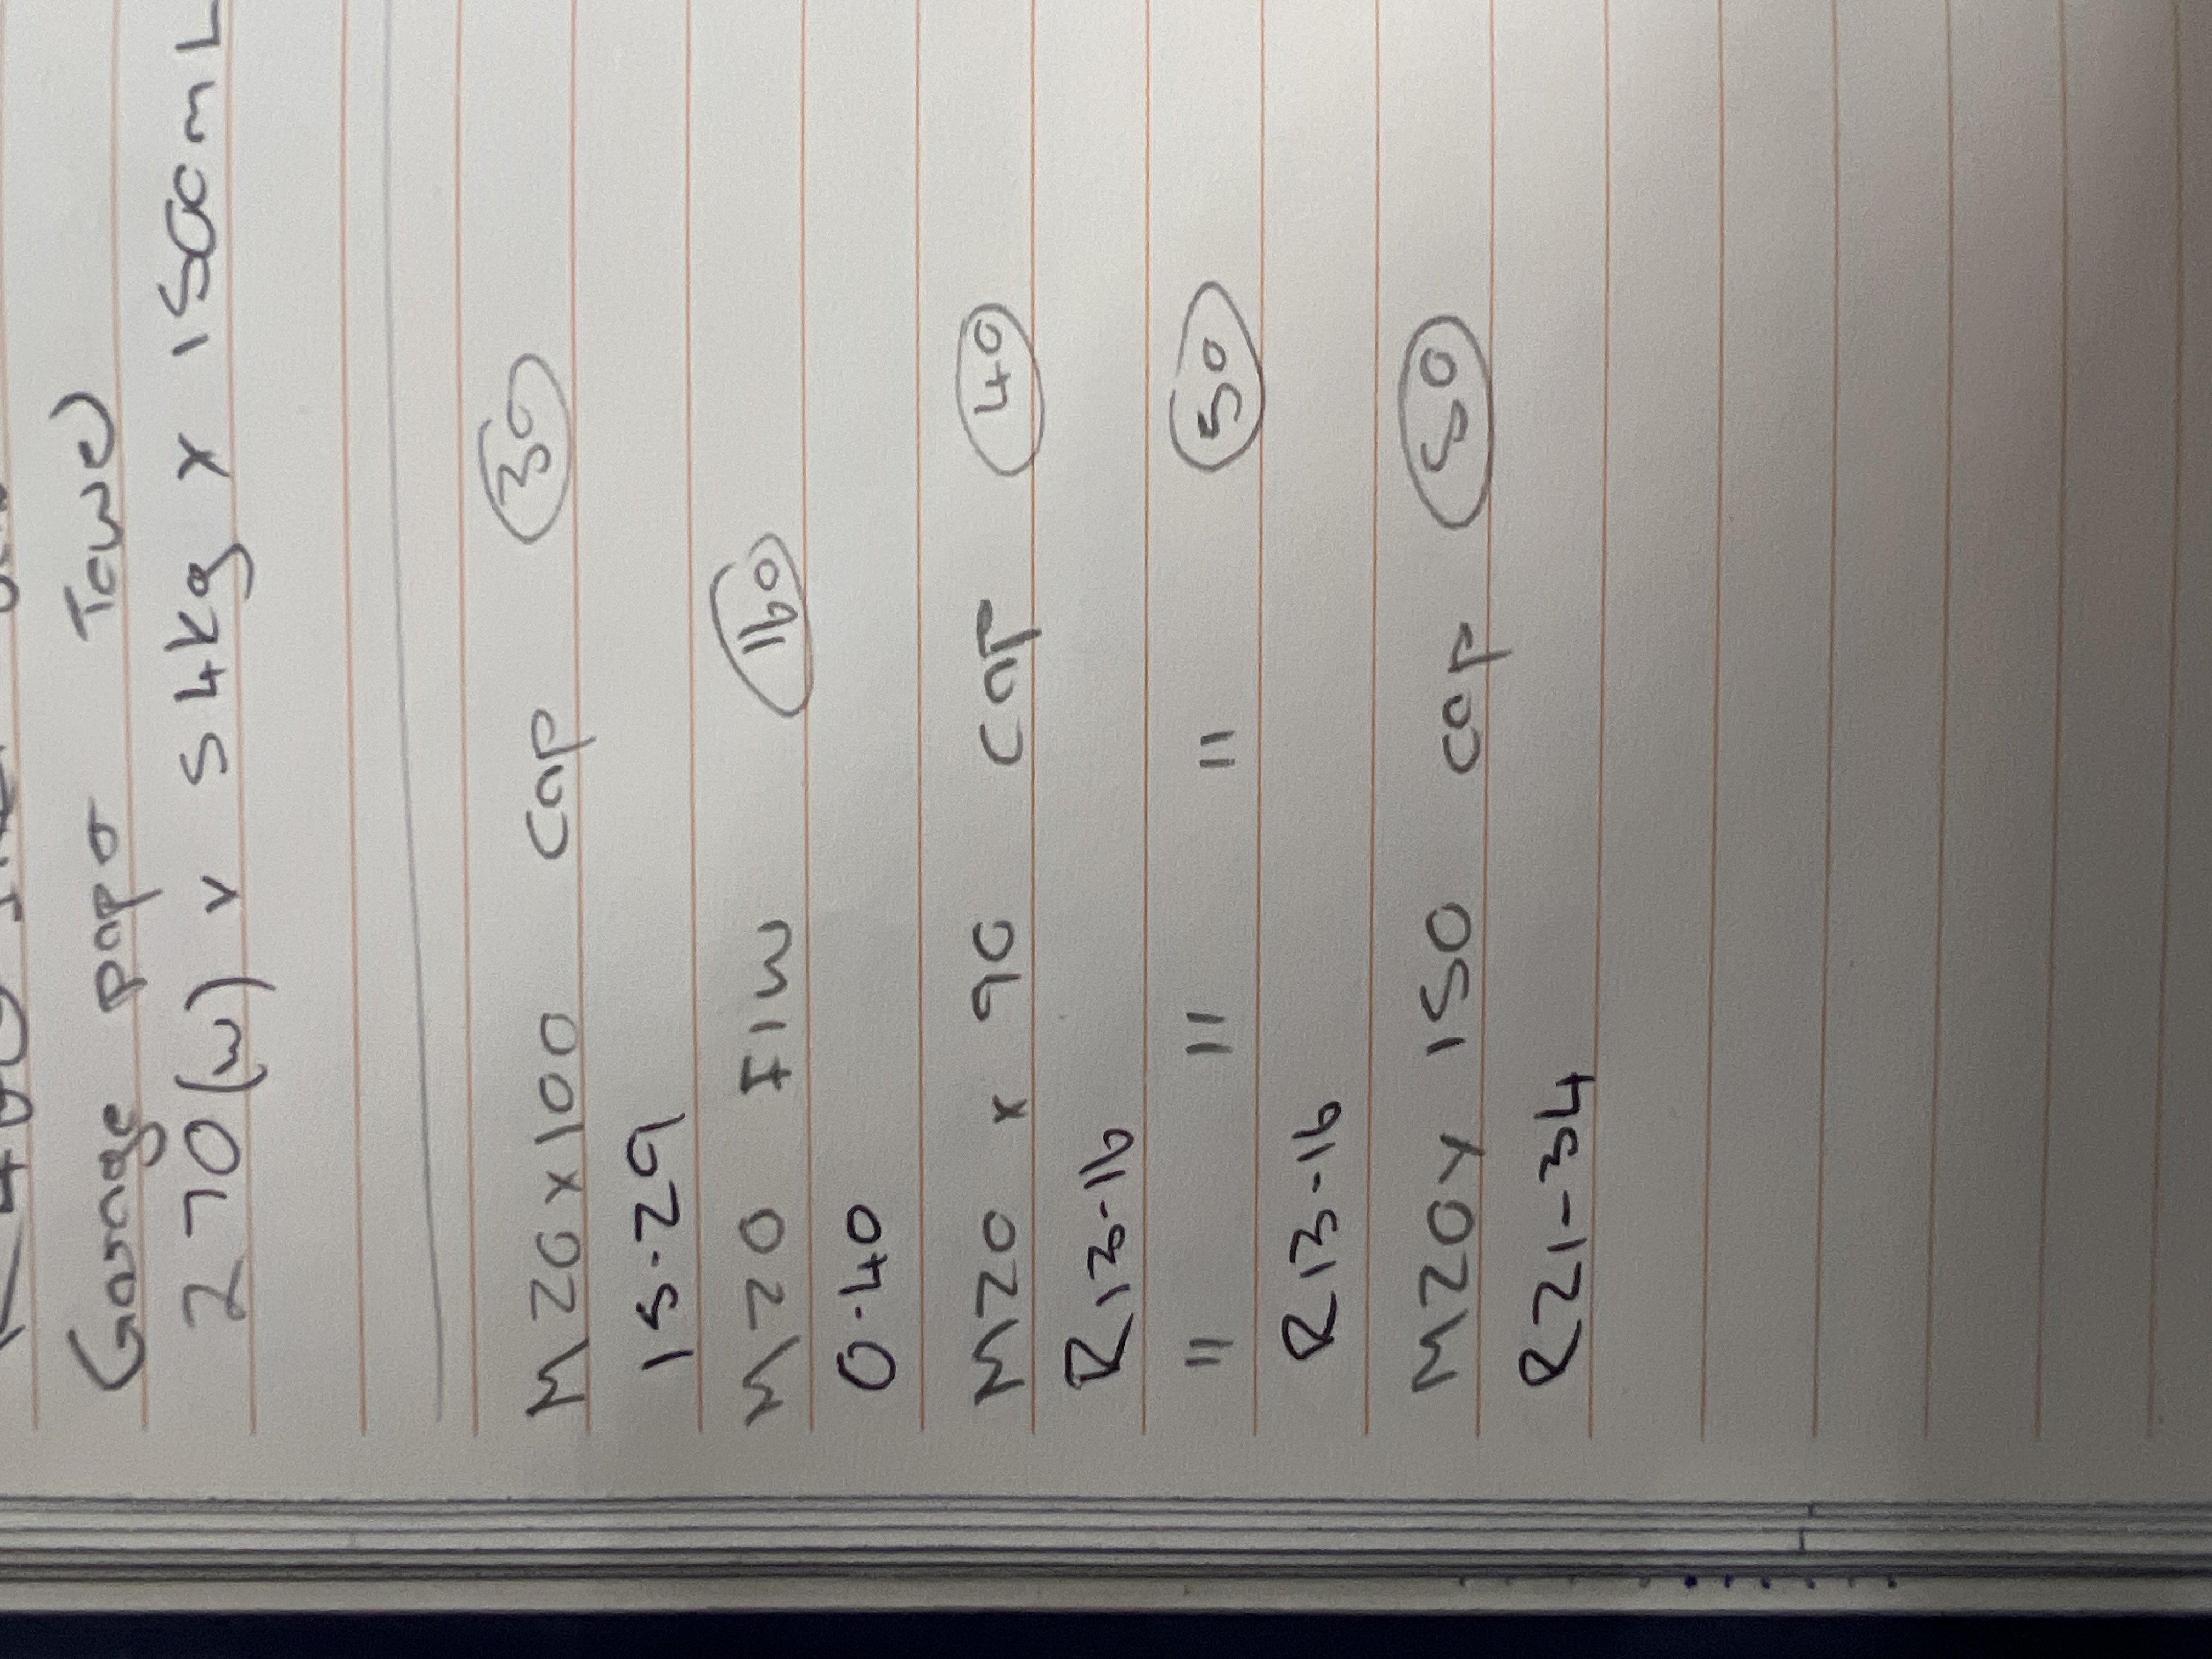 Garage paper Towel
270(w) x 54kg x 1500mL
M20x100 cap 30
15-29
M20 F/W 160
0-40
M20 x 90 cap 40
R13-16
" " " 50
R13-16
M20x 150 cap 50
R21-34